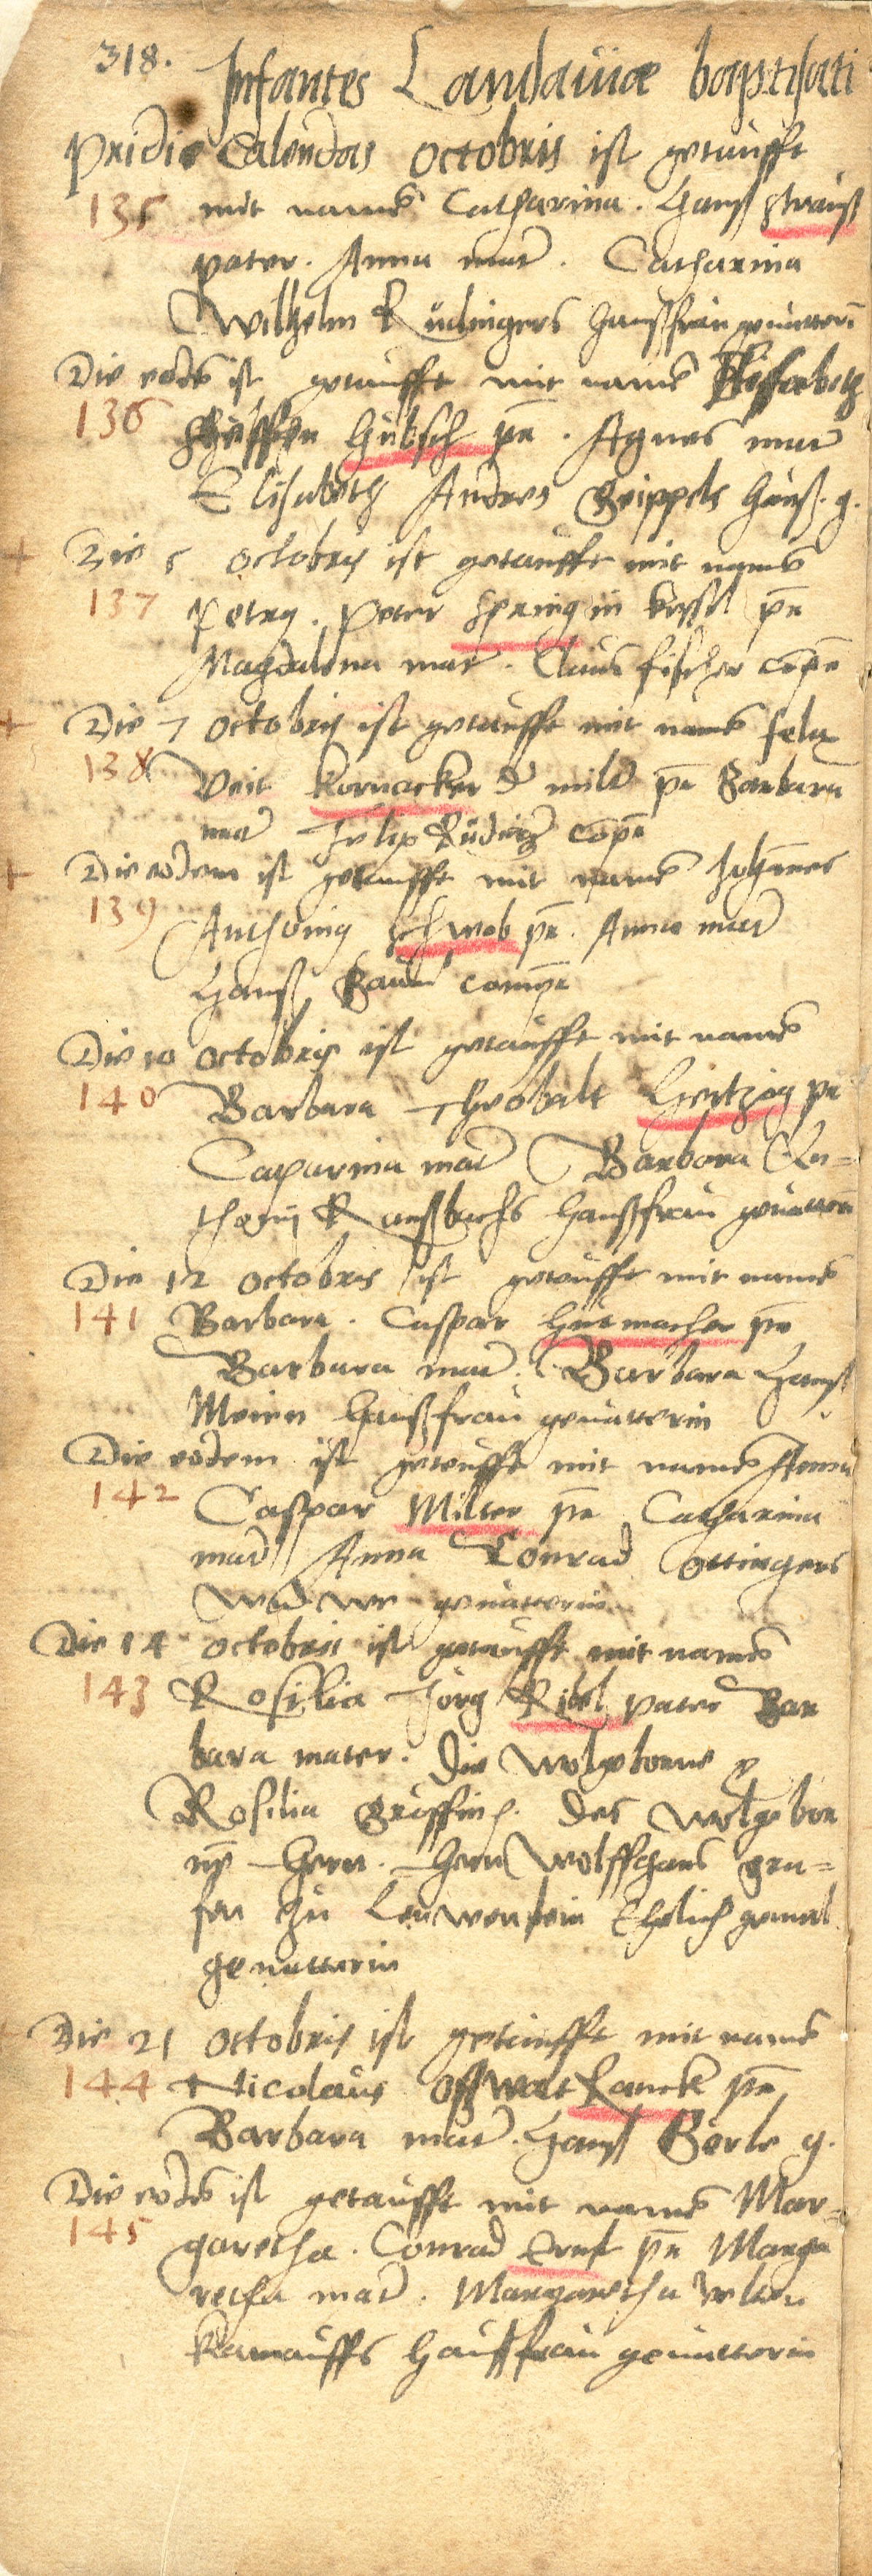 318. Infantes Landauiae baptisati
Pridie Calendas Octobris ist getaufft
135 mit name Catharina. Hanß strauß
pater. Anna mat. Catharina
Wilhelm Rudingers haußfrau geuatteri
Die eode ist getaufft mit name
136 Steffen Hubsch pr. Agnes mat
Elisabeth Andres Grippels hauß. g.
Die 5 octobris ist getaufft mit name
137 Petrg. Peter Spring in pr
Magdalena mat. Claus fischer compr
Die 7 octobris ist getaufft mit name felix
138 Veit Kornacker d milr pr Barbara
mat Felix Rudnig compr
Die eodem ist getaufft mit name Johannes
139 Anthonig schwob pr. Anna mat
Hanß Baur compr
Die 10 octobris ist getaufft mit name
140 Barbara Theobalt Hertzog pr
Catharina mat Barbara An=
thonij Haußfrau geuatteri
Die 12 octobris ist getaufft mit name
141 Barbara. Caspar Hutmacher pr
Barbara mat. Barbara Hanß
Meien haußfrau geuatterin
Die eodem ist getaufft mit name Anna
142 Caspar Milter pr Catharina
mat Anna Conrad Ottingers
Wadwe geuatterin
Die 14 octobris ist getaufft mit name
143 Rosilia Jorg Ribel pater Bar
bara mater. Die Wolgeborne
Rosilia Gräffin. des wolgebor
ne Hern. Hern Wolffgans gra=
fen zu Leuwenstein Ehelich gemal
geuatterin
Die 21 octobris ist getaufft mit name
144 Nicolaus Oßwalt Ranck pr
Barbara mat. Hanß Berle g.
Die eode ist getaufft mit name Mar=
145 garetha. Conrad Ernst pr Marga
retha mat. Margaretha Velten
Kamauffs haußfrau geuatterin